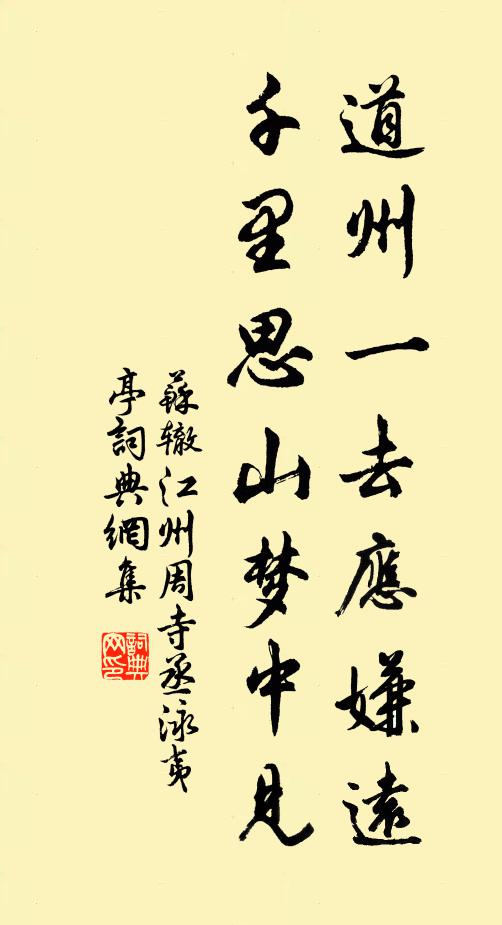 道州一去應嫌遠
千里思山梦中見
蘇辙江州周寺丞泳夷
亭詞典網集
詞典
网印